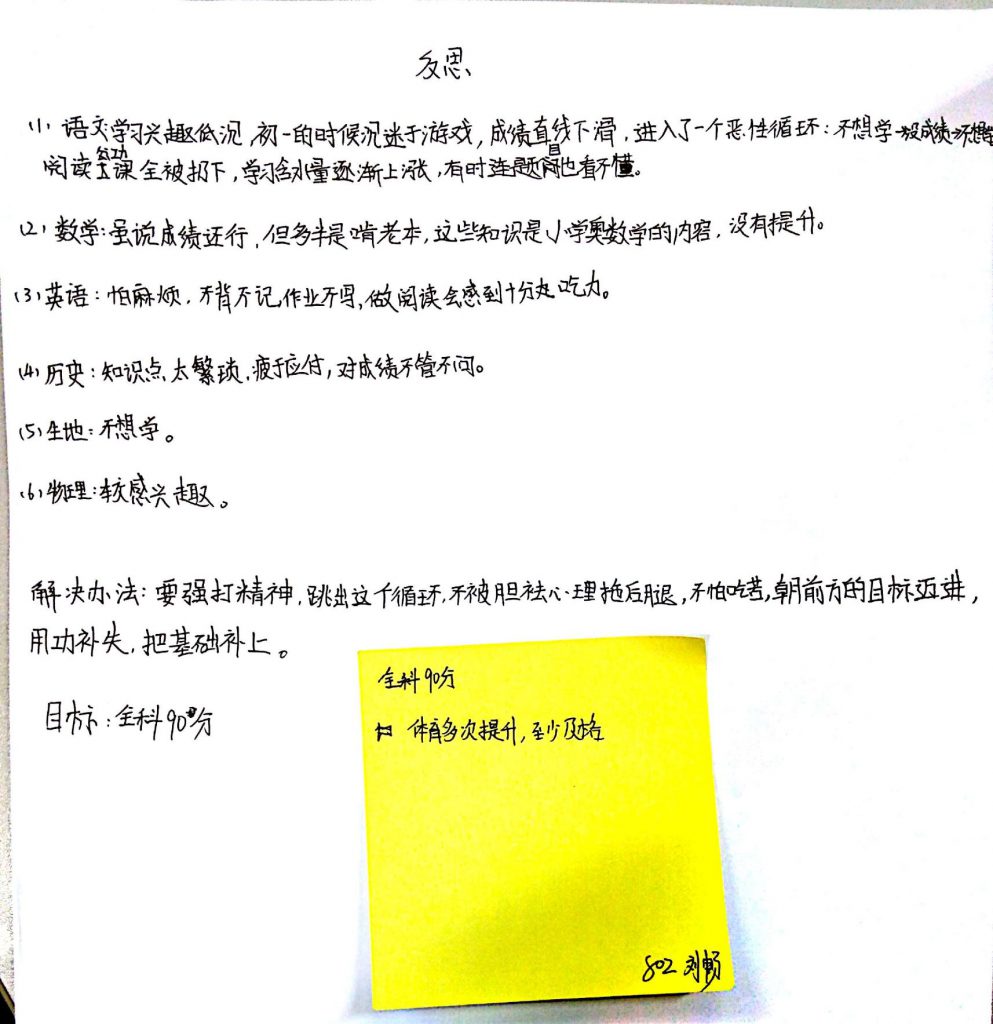 反思
(1) 语文:学习兴趣低沉,初一的时候沉迷于游戏,成绩直线下滑,进入了一个恶性循环:不想学→没成绩→不想学
阅读公功课全被扔下,学习含水量逐渐上涨,有时连题目也看不懂。
(2) 数学:虽说成绩还行,但多半是啃老本,这些知识是小学奥数学的内容,没有提升。
(3) 英语:怕麻烦,不背不记,作业不写,做阅读会感到十分吃力。
(4) 历史:知识点太繁琐,疲于应付,对成绩不管不问。
(5) 生地:不想学。
(6) 物理:较感兴趣。
解决办法:要强打精神,跳出这个循环,不被胆怯心理拖后腿,不怕吃苦,朝前方的目标迈进,
用功补失,把基础补上。
目标:全科90分
全科90分
体育多次提升,至少及格
802 刘畅